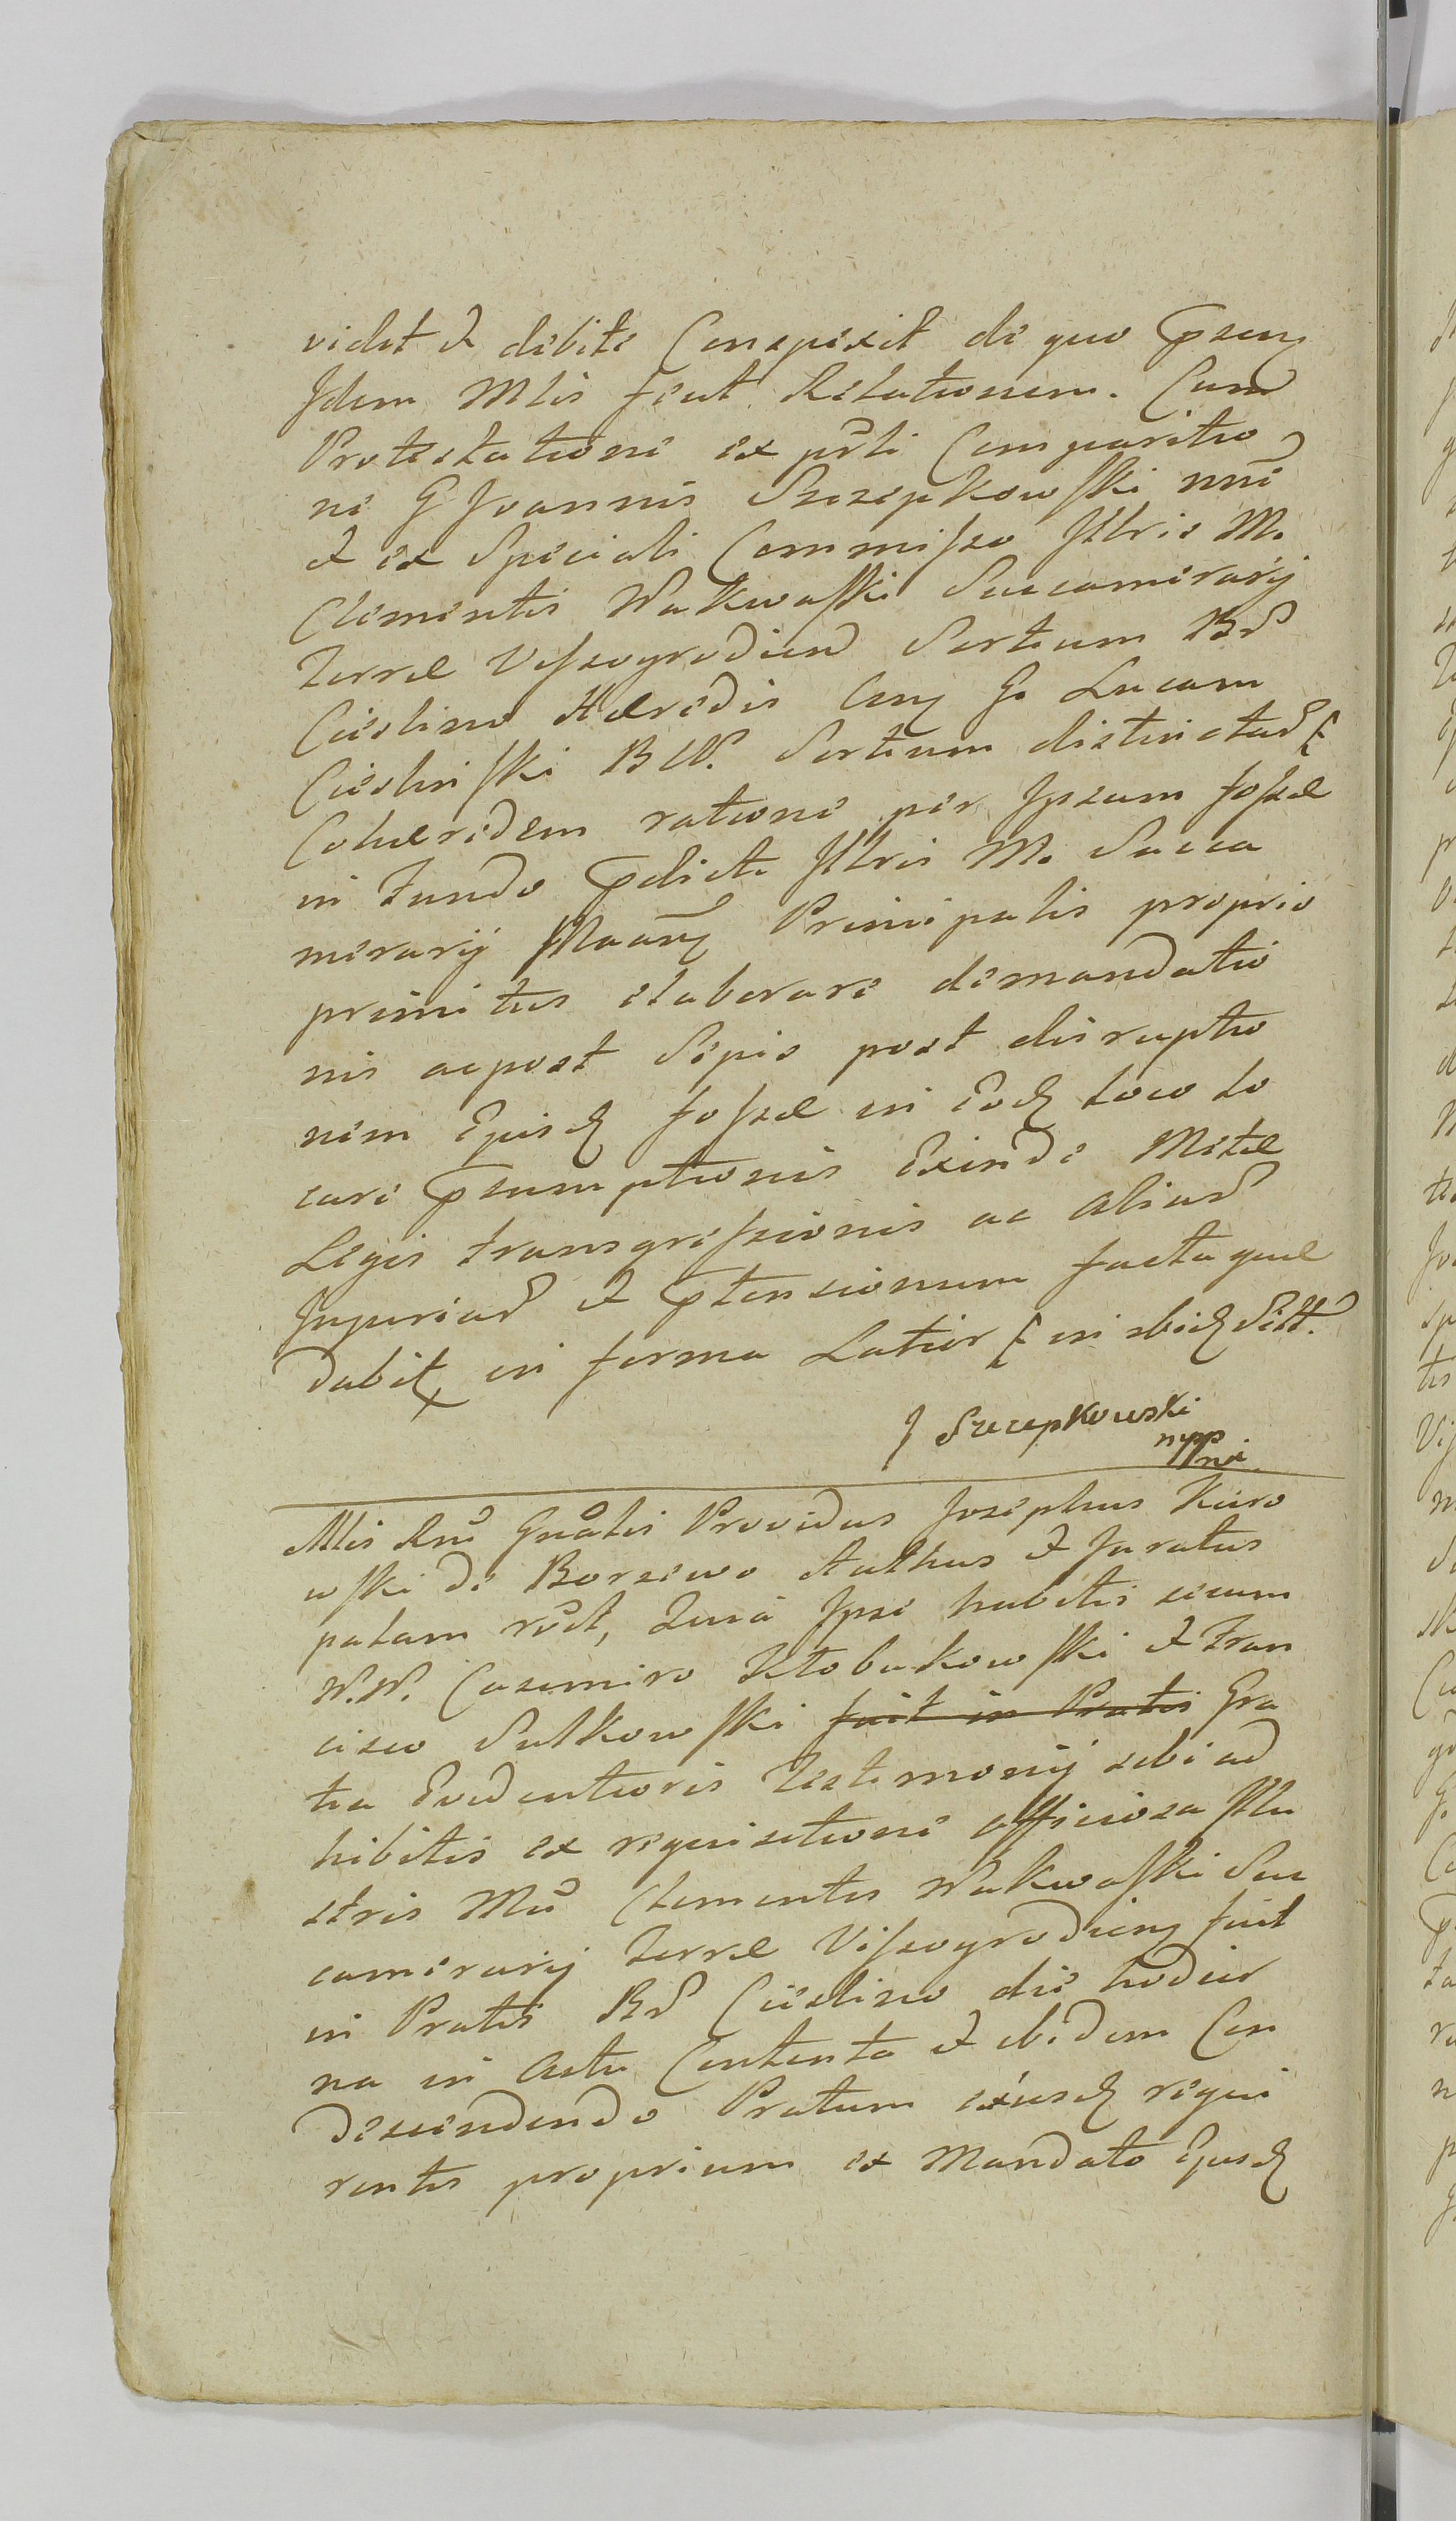 vidit et debite Conspexit de quo Prens
Idem Mlis fecit Relationem. Cum
Protestatione ex prsti Comparitio
ne G Joannis Szczepkowski nni
et ex Speciali Commisso Illris M.
Clementis Nakwaski Succamerarij
Terræ Viszogrodien Sortium BB
Cieslino Hæredis Cong G. Lucam
Cieslinski B N. Sortium districtar
Cohæredem ratione per Ipsum fossæ
in fundo Pdicti Illris M. Succa
merarij Principalis proprio
primitus elaborare demandatio
nis ac post Sepis post disruptio
nem Ejusd fossæ in Eod loco lo
care Psumptionis Exinde Metæ
Legis transgressionis ac aliar
Injuriar et Ptensionum facta quæ
dabit in forma Latior in ibid Sitt.
J Szczepkowski
mpp
nõe
Mlis Rni Gnalis Providus Josephus Kuro
wski de Borzewo Authus et Juratus
palam rcdt, Quia Ipse habitis secum
N.N. Casimiro Kłobukowski et Fran
cisco Sulkowski fuit in Pratis Gra
tia Evidentioris Testimonij sibi ad
hibitis ex requisitione officiosa Illu
stris Mci Clementis Nakwaski Suc
camerarij Terræ Viszogrodieng fuit
in Pratis BB Cieslino die hodier
na in Actu Contenta et ibidem Con
descendendo Pratum ejusd requi
rentis proprium ex Mandato Ejusd